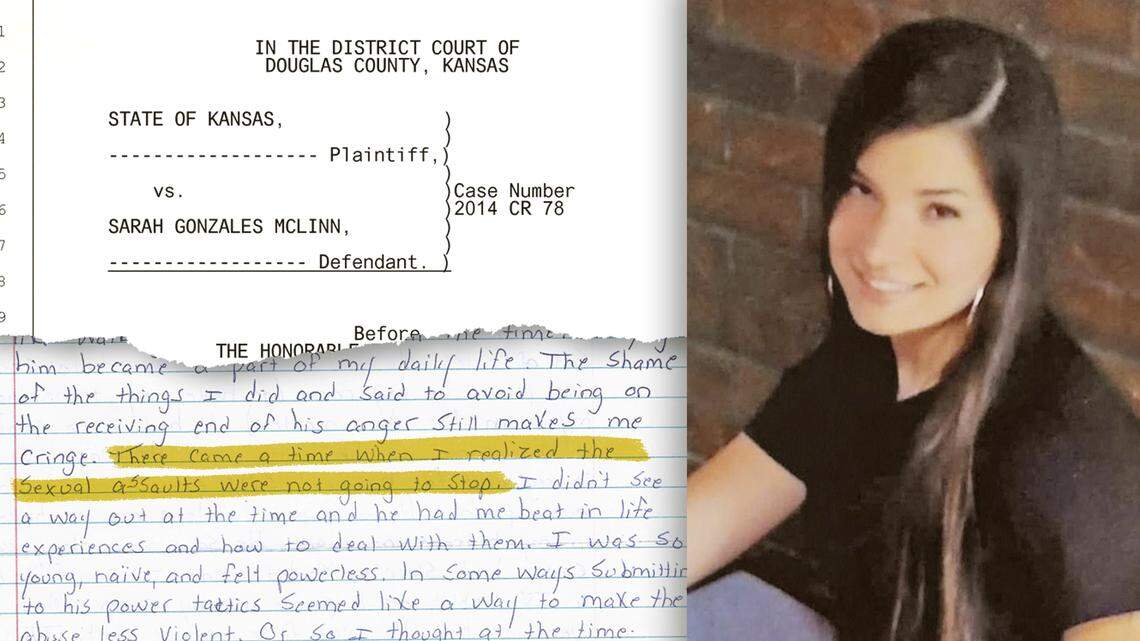 1
2
3
4
5
6
7
8
9
IN THE DISTRICT COURT OF
DOUGLAS COUNTY, KANSAS
STATE OF KANSAS,
------------------- Plaintiff,
vs.
Case Number
2014 CR 78
SARAH GONZALES MCLINN,
------------------ Defendant.
Before
THE HONORABLE
time
him became a part of my daily life. The shame
of the things I did and said to avoid being on
the receiving end of his anger still makes me
cringe. There came a time when I realized the
sexual assaults were not going to stop. I didn't see
a way out at the time and he had me beat in life
experiences and how to deal with them. I was so
young, naïve, and felt powerless. In some ways submittin
to his power tactics seemed like a way to make the
abuse less violent. Or so I thought at the time.